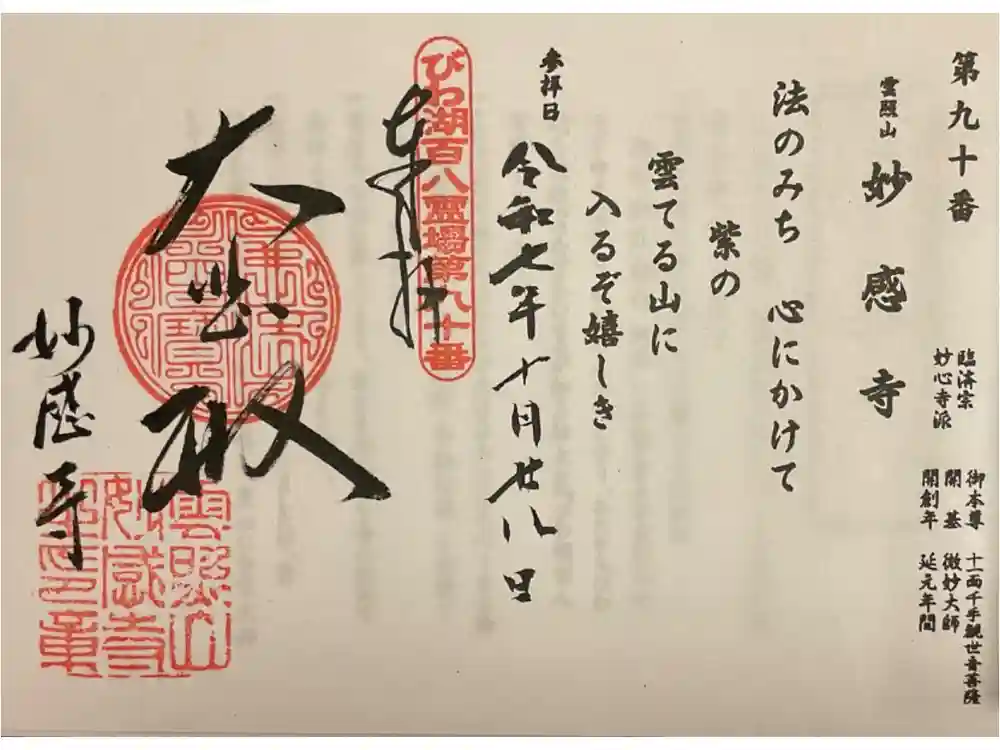 第九十番
雲照山 妙感寺
臨済宗
妙心寺派
御本尊 十一面千手観世音菩薩
開基 微妙大師
開創年 延元年間
法のみち 心にかけて
紫の
雲てる山に
入るぞ嬉しき
参拝日 令和七年十月廿八日
奉拝
びわ湖百八霊場第九十番
大悲殿
妙感寺
雲照山
妙感寺